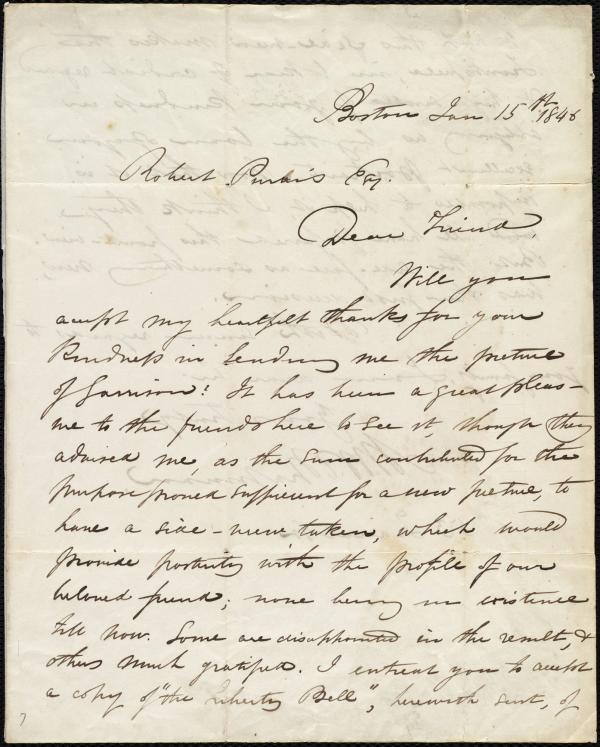 Boston Jan 15th 1846
Robert Purvis Esq.
Dear Friend,
Will you
accept my heartfelt thanks for your
kindness in lending me the picture
of Garrison! It has been a great pleas-
ure to the friends here to see it, though they
advised me, as the sum contributed for the
purpose proved sufficient for a new picture, to
have a side-view taken, which would
provide posterity with the profile of our
beloved friend; none being in existence
till now. Some are disappointed in the result, &
others much gratified. I entreat you to accept
a copy of "the Liberty Bell", herewith sent, of